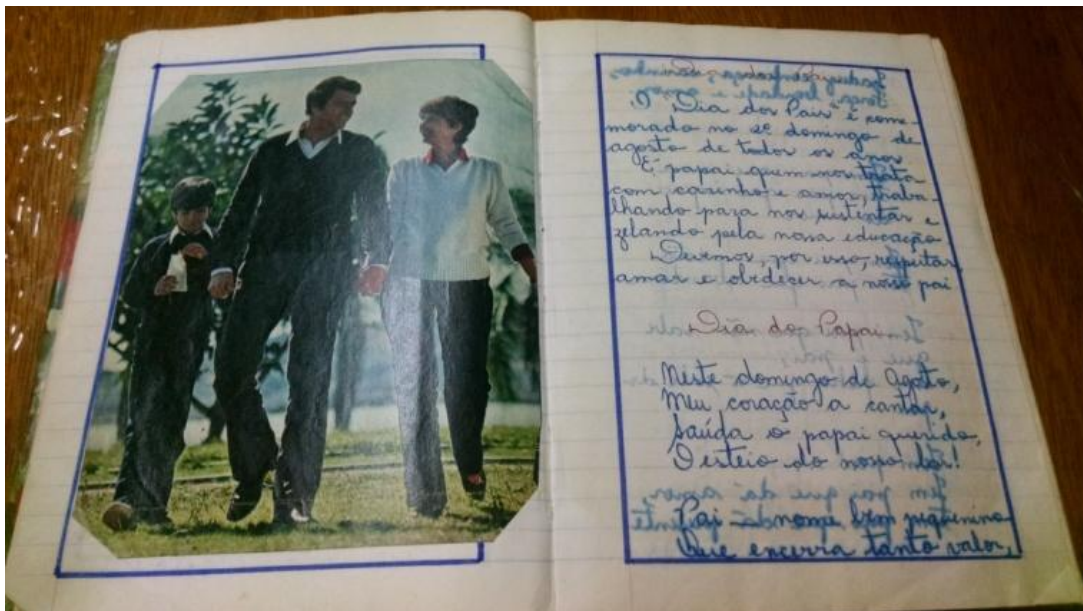 O "Dia dos Pais" é come-
morado no 2º domingo de
agosto de todos os anos
É papai quem nos trata
com carinho e amor, traba-
lhando para nos sustentar e
zelando pela nossa educação
Devemos, por isso, respeitar,
amar e obedecer a nosso pai
Dia do Papai
Neste domingo de Agosto,
Meu coração a cantar,
Saúda o papai querido,
O esteio do nosso lar!
Pai - nome bem pequenino
Que encerra tanto valor,